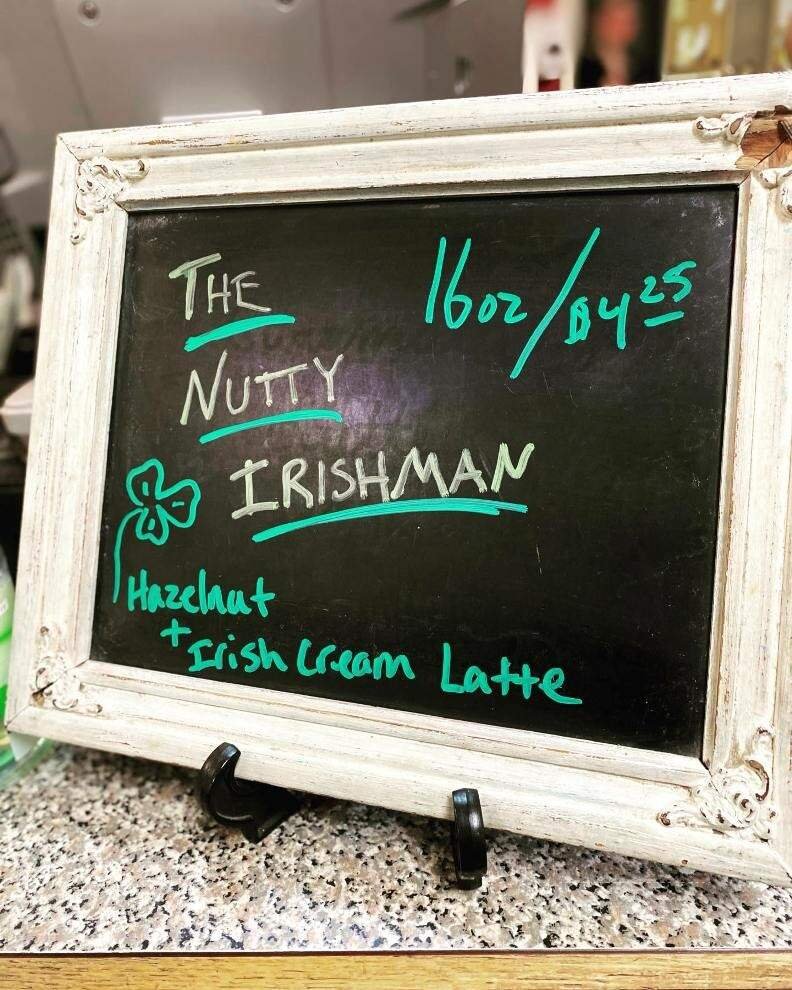 THE
16oz/$4.25
NUTTY
IRISHMAN
Hazelnut
+ Irish Cream Latte